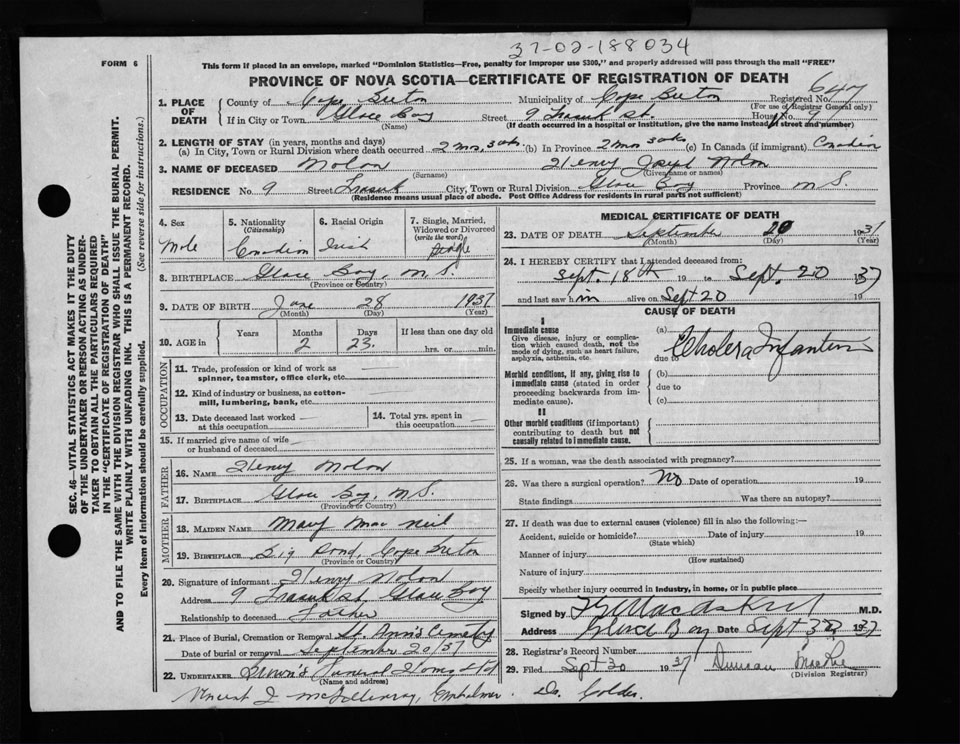 37-02-188034
FORM 6
This form if placed in an envelope, marked "Dominion Statistics—Free, penalty for improper use $300," and properly addressed will pass through the mail "FREE"
PROVINCE OF NOVA SCOTIA—CERTIFICATE OF REGISTRATION OF DEATH
SEC. 46—VITAL STATISTICS ACT MAKES IT THE DUTY
OF THE UNDERTAKER OR PERSON ACTING AS UNDER-
TAKER TO OBTAIN ALL THE PARTICULARS REQUIRED
IN THE "CERTIFICATE OF REGISTRATION OF DEATH"
AND TO FILE THE SAME WITH THE DIVISION REGISTRAR WHO SHALL ISSUE THE BURIAL PERMIT.
WRITE PLAINLY WITH UNFADING INK. THIS IS A PERMANENT RECORD.
Every item of information should be carefully supplied. (See reverse side for instructions.)
1. PLACE OF DEATH
County of Cape Breton Municipality of Cape Breton Registered No. 647
(For use of Registrar General only)
If in City or Town Glace Bay Street 9 Frank St. House No. 9
(Name) (If death occurred in a hospital or institution, give the name instead of street and number)
2. LENGTH OF STAY (in years, months and days)
(a) In City, Town or Rural Division where death occurred 2 mos, 3 wks (b) In Province 2 mos 3 wks (c) In Canada (if immigrant) Canadian
3. NAME OF DECEASED Nolan Henry Joseph Nolan
(Surname) (Given name or names)
RESIDENCE No. 9 Street Frank City, Town or Rural Division Glace Bay Province N.S.
(Residence means usual place of abode. Post Office Address for residents in rural parts not sufficient)
4. Sex
Male
5. Nationality
(Citizenship)
Canadian
6. Racial Origin
Irish
7. Single, Married,
Widowed or Divorced
(write the word)
Single
8. BIRTHPLACE Glace Bay, N.S.
(Province or Country)
9. DATE OF BIRTH June 28 1937
(Month) (Day) (Year)
10. AGE in Years Months Days If less than one day old
2 23 hrs. or min.
OCCUPATION
11. Trade, profession or kind of work as
spinner, teamster, office clerk, etc.
12. Kind of industry or business, as cotton-
mill, lumbering, bank, etc.
13. Date deceased last worked
at this occupation
14. Total yrs. spent in
this occupation
15. If married give name of wife
or husband of deceased
FATHER
16. NAME Henry Nolan
17. BIRTHPLACE Glace Bay, N.S.
(Province or Country)
MOTHER
18. MAIDEN NAME Mary Mac Neil
19. BIRTHPLACE Big Pond, Cape Breton
(Province or Country)
20. Signature of informant Henry Nolan
Address 9 Frank St. Glace Bay
Relationship to deceased Father
21. Place of Burial, Cremation or Removal St. Ann's Cemetery
Date of burial or removal September 20/37
22. UNDERTAKER Brown's Funeral Home Ltd
(Name and address)
Vincent J. Embalmer.
MEDICAL CERTIFICATE OF DEATH
23. DATE OF DEATH September 20 1937
(Month) (Day) (Year)
24. I HEREBY CERTIFY that I attended deceased from:
Sept. 18th 19 to Sept. 20 1937
and last saw him alive on Sept 20 19
CAUSE OF DEATH
I
Immediate cause
Give disease, injury or complica-
tion which caused death, not the
mode of dying, such as heart failure,
asphyxia, asthenia, etc.
(a) Cholera Infantum
due to
Morbid conditions, if any, giving rise to
immediate cause (stated in order
proceeding backwards from im-
mediate cause).
(b)
due to
(c)
II
Other morbid conditions (if important)
contributing to death but not
causally related to immediate cause.
25. If a woman, was the death associated with pregnancy?
26. Was there a surgical operation? No Date of operation 19
State findings Was there an autopsy?
27. If death was due to external causes (violence) fill in also the following:—
Accident, suicide or homicide? Date of injury 19
(State which)
Manner of injury
(How sustained)
Nature of injury
Specify whether injury occurred in industry, in home, or in public place
Signed by MacAskill M.D.
Address Glace Bay Date Sept 1937
28. Registrar's Record Number
29. Filed Sept 30 1937 Duncan MacRae
(Division Registrar)